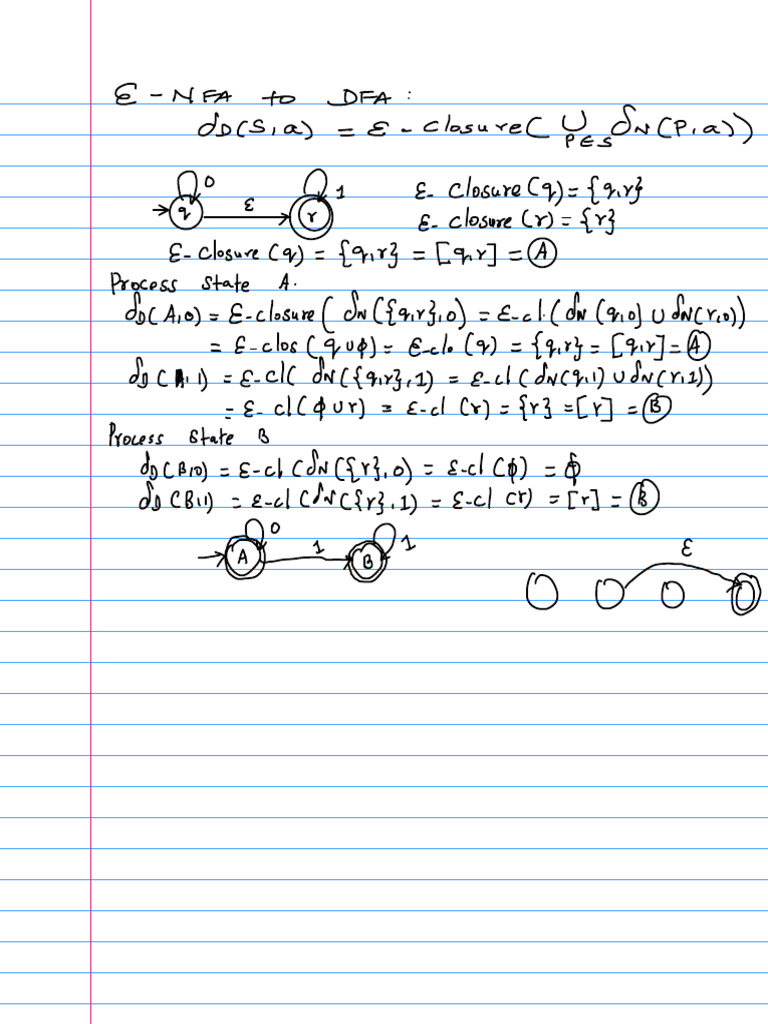 ε - NFA to DFA :
δD(S,a) = ε - closure( ∪ P∈S δN(P,a))
0 1 ε- closure(q) = {q,r}
q ε r ε- closure (r) = {r}
ε- closure (q) = {q,r} = [q,r] = A
Process state A.
δD(A,0) = ε-closure( δN({q,r},0) = ε-cl.(δN (q,0) ∪ δN(r,0))
= ε-clos( q ∪ φ) = ε-clo. (q) = {q,r} = [q,r] = A
δD (A,1) = ε-cl( δN({q,r},1) = ε-cl(δN(q,1) ∪ δN(r,1))
= ε- cl(φ ∪ r) = ε-cl (r) = {r} = [r] = B
Process state B
δD(B,0) = ε-cl(δN({r},0) = ε-cl (φ) = φ
δD (B,1) = ε-cl(δN({r},1) = ε-cl (r) = [r] = B
0 1
A 1 B ε